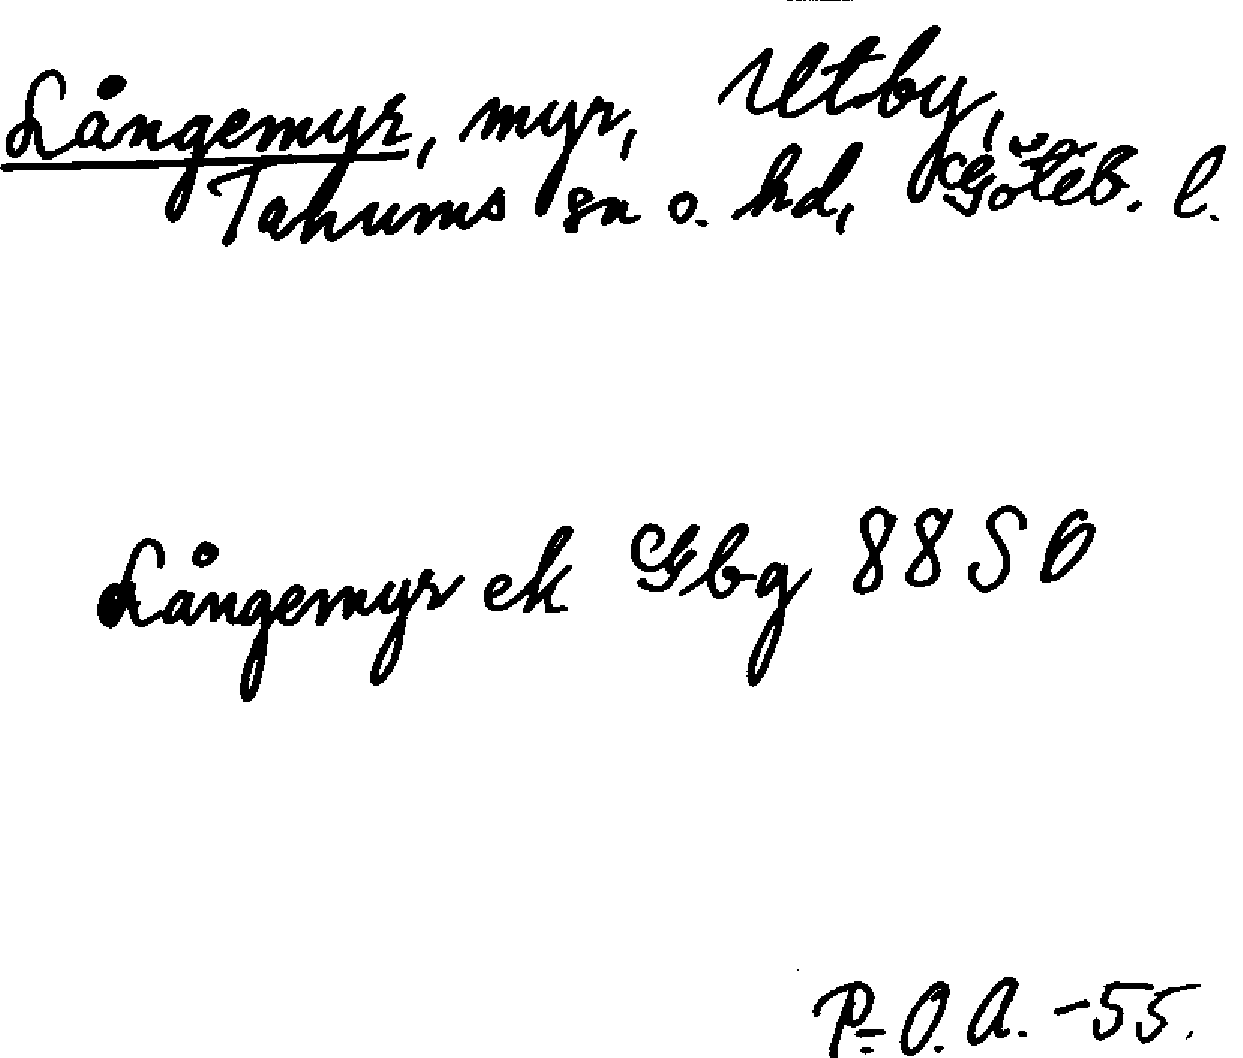 Långemyr, myr, Utby,
Tanums sn o. hd, Göteb. l.
Långemyr ek Gbg 88 SO
P.-O. A. -55.